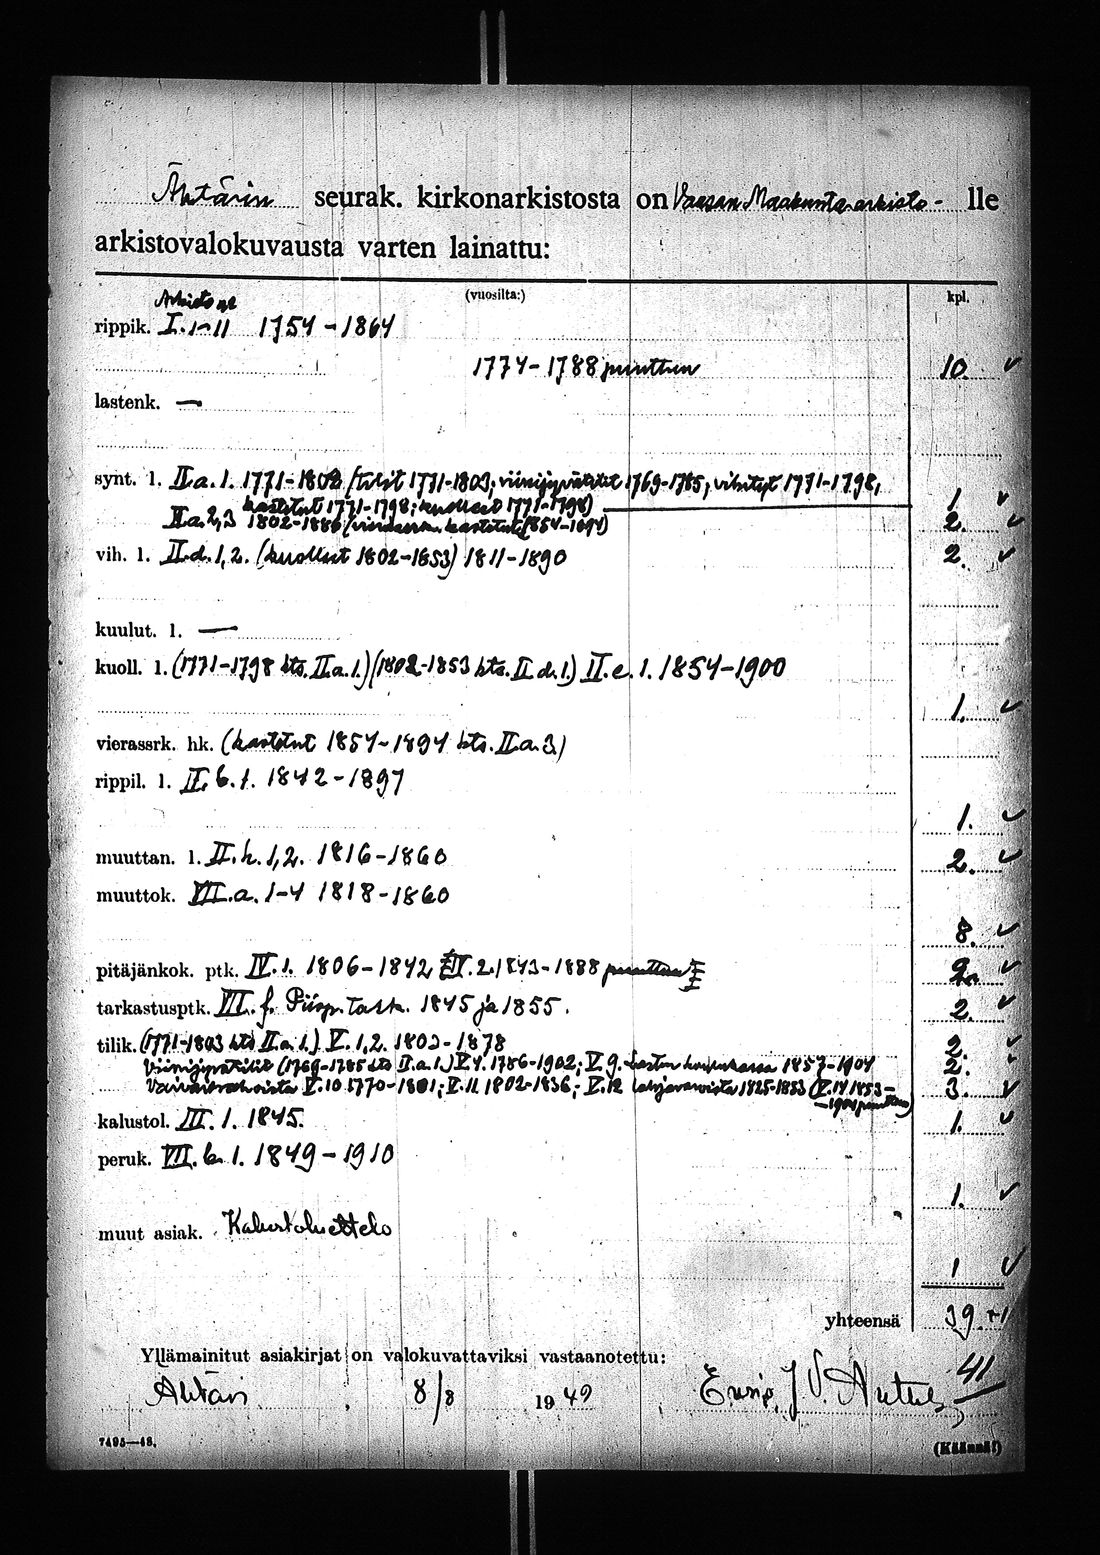 Ähtärin seurak. kirkonarkistosta on Vaasan Maakunta-arkisto- lle
arkistovalokuvausta varten lainattu:
(vuosilta:) kpl.
rippik. I. 1-11 1754-1864
1774-1788 puuttuu 10.
lastenk. —
synt. l. II a. 1. 1771-1802 (tilit 1771-1803; viinijyvätilit 1769-1785; vihityt 1771-1798,
kastetut 1771-1798; kuolleet 1771-1798) 1
II a. 2,3 1802-1886 (vierassrk. kastetut 1854-1894) 2.
vih. l. II d. 1, 2. (kuolleet 1802-1853) 1811-1890 2.
kuulut. l. —
kuoll. l. (1771-1798 kts. II a. 1.) (1802-1853 kts. II d. 1.) II. e. 1. 1854-1900
1.
vierassrk. hk. (kastetut 1854-1894 kts. II a. 3.)
rippil. l. II. b. 1. 1842-1897
1.
muuttan. l. II. h. 1, 2. 1816-1860 2.
muuttok. VII. a. 1-4 1818-1860
8.
pitäjänkok. ptk. IV. 1. 1806-1842 IV. 2. 1843-1888 puuttuu 2.
tarkastusptk. VII. f. Piisp. tark. 1845 ja 1855. 2.
tilik. (1771-1803 kts II a. 1.) V. 1, 2. 1803-1878 2.
Viinijyvätilit (1769-1785 kts II a. 1.) V. 4. 1786-1902; V. 9. 1857-1904 2.
V. 10 1770-1801; V. 11. 1802-1836; V. 12 1825-1853 (V. 14 1853- 3.
-1904 puuttuu)
kalustol. III. 1. 1845. 1.
peruk. VII. b. 1. 1849-1910
1.
muut asiak. Kalustoluettelo
1
yhteensä 39. +1
Yllämainitut asiakirjat on valokuvattaviksi vastaanotettu: 41
Ähtäri 8/8 1949
7495—48. (Käännä!)